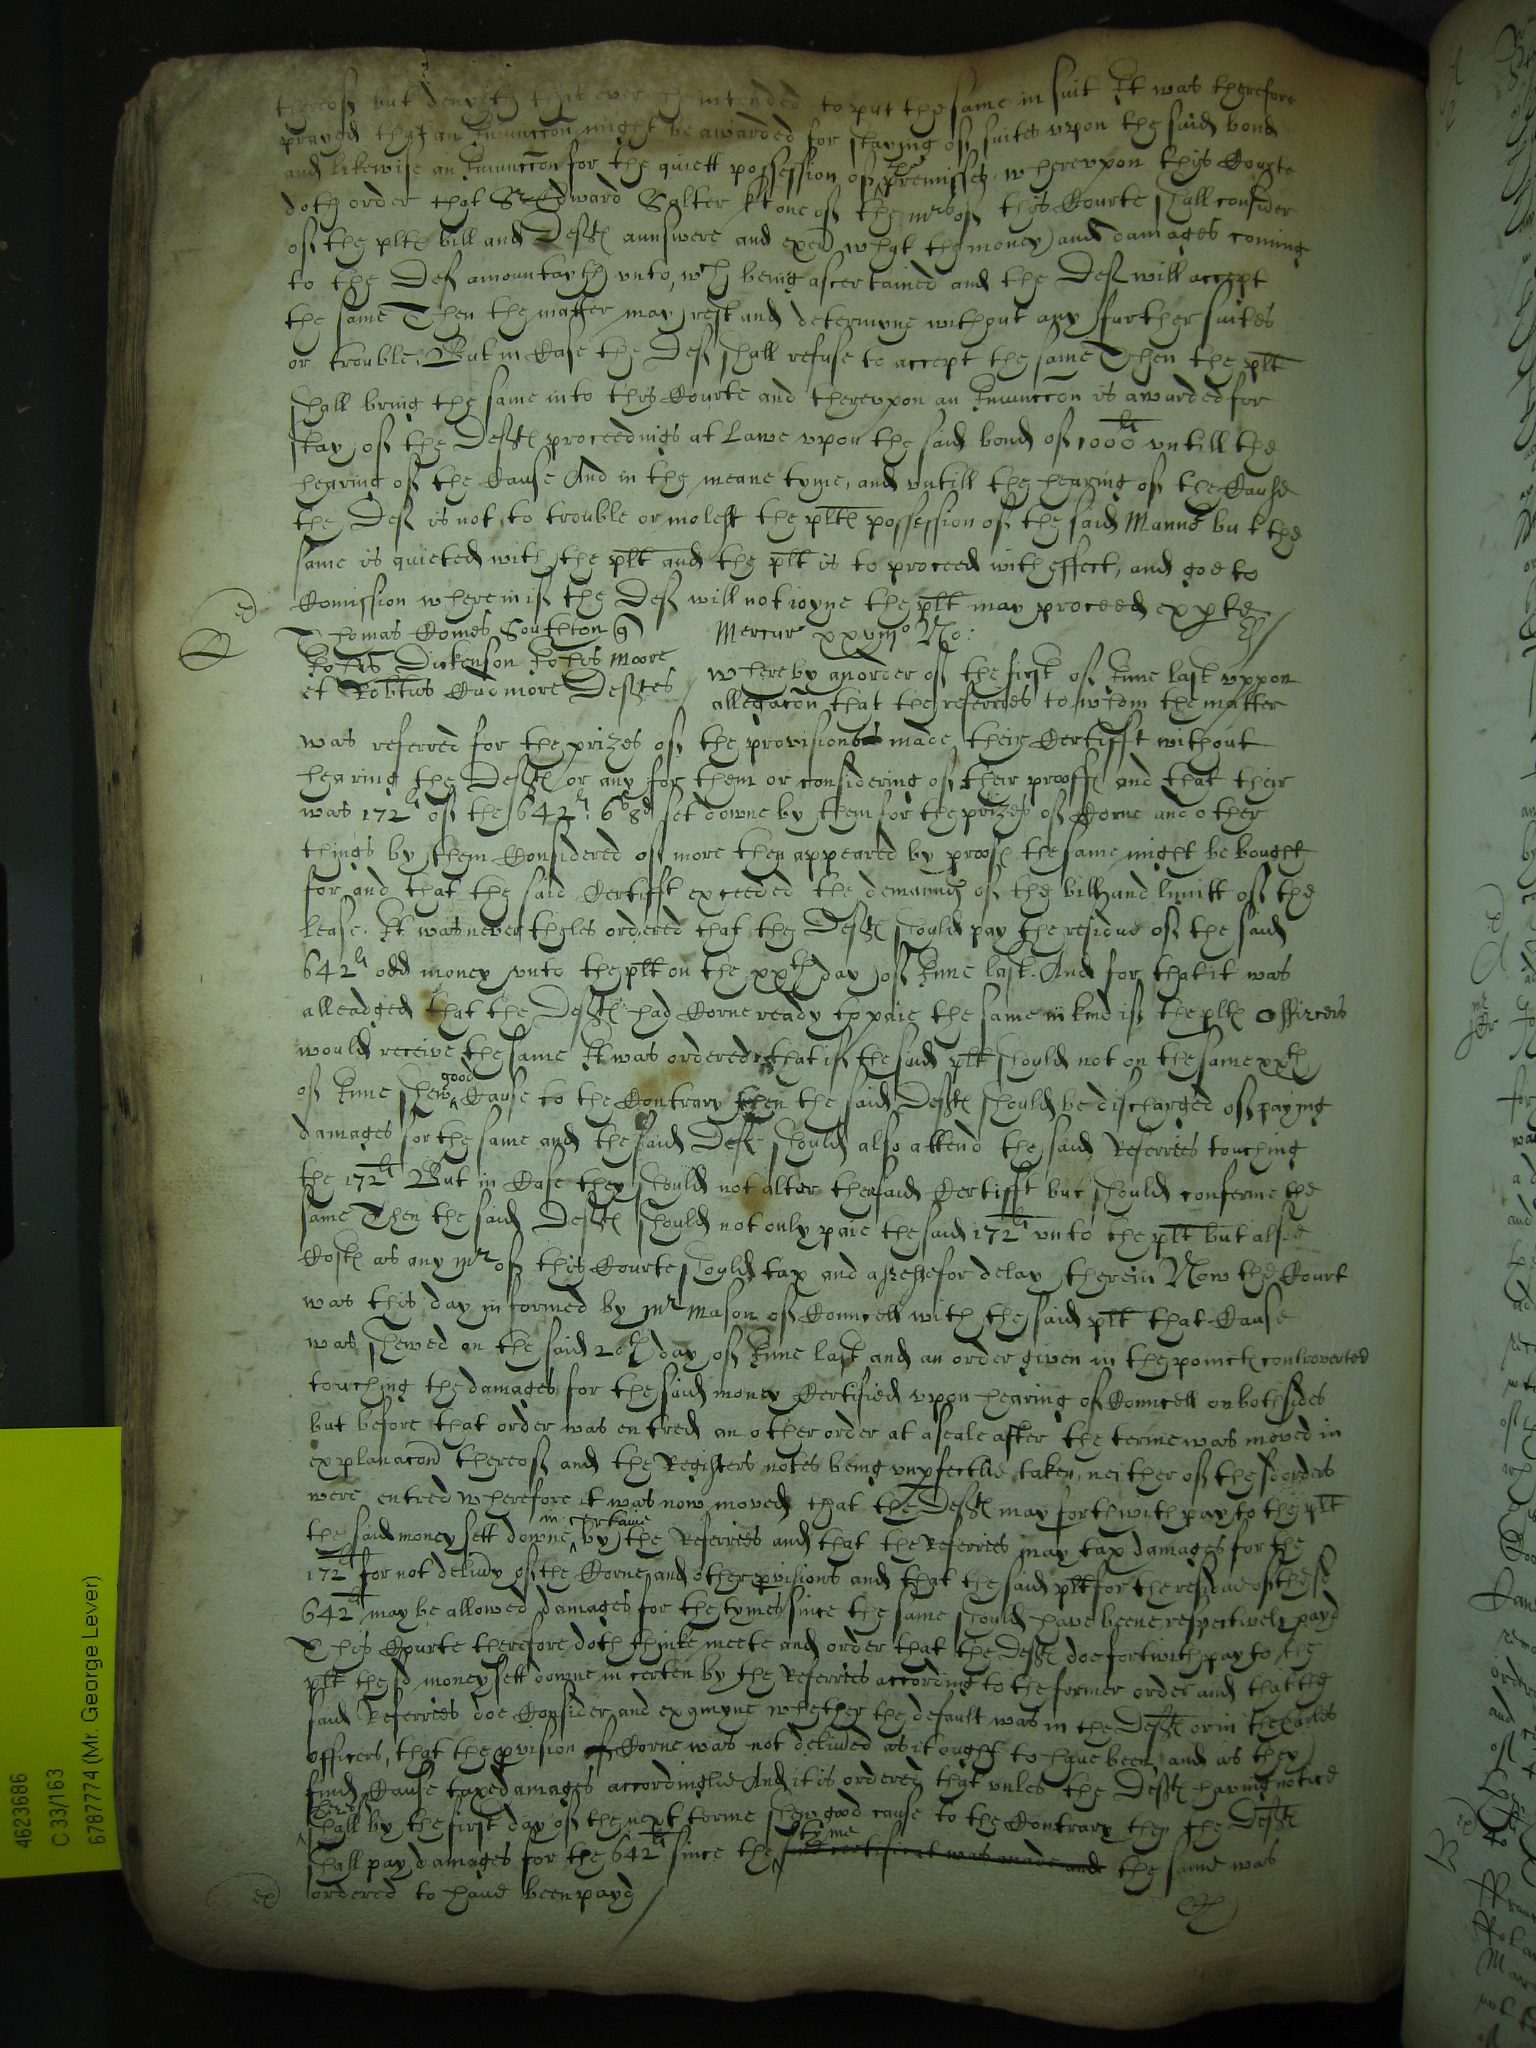 thereof but denyeth that ever he intended to put the same in suit It was therefore
prayed that an Iniunccon might be awarded for staying of suites vpon the said bond
and likewise an Iniunccon for the quiett possession of the premisses. wherevpon this Courte
doth order that Sr Edward Salter kt one of the mrs of this Courte shall consider
of the plts bill and Defts aunswere and exd what the money and damages coming
to the Def amountayth vnto, wch being ascertained and the Def will accept
the same Then the matter may rest and determyne without any further suites
or trouble. But in Case the Def shall refuse to accept the same Then the plt
shall bring the same into this Courte and therevpon an Iniunccon is awarded for
stay of the Defts proceedings at Lawe vpon the said bond of 1000li vntill the
hearing of the Cause And in the meane tyme, and vntill the hearing of the Cause
the Def is not to trouble or molest the plts possession of the said Mannor but the
same is quieted with the plt and the plt is to proceed with effect, and goe to
Comission wherein if the Def will not ioyne the plt may proceed ex pte
Thomas Comes Southton
Mercur xxvijmo No:
Iohes Dickenson Iohes Moore
et Robtus Cudmore Deftes
whereby an order of the first of Iune last vppon
allegacon that the referrees to whom the matter
was referred for the prizes of the provisions made their Certifft without
hearing the Defts or any for them or considering of their prooffs and that their
was 172li of the 642li 6s 8d set downe by them for the prizes of Corne and other
things by them Considered of more then appeared by proofs the same might be bought
for and that the said Certifft exceeded the demaund of the bill and limitt of the
lease. It was neverthelès ordered that the Defts should pay the residue of the said
642li odd money vnto the plt on the xxth day of Iune last. And for that it was
alleadged that the Defts had Corne ready to paie the same in kind if the plts Officers
would receive the same It was ordered that if the said plt should not on the same xxth
of Iune shew good Cause to the Contrary then the said Defts should be discharged of paying
damages for the same and the said Defts should also attend the said Referrees touching
the 172li But in Case they should not alter the said Certifft but should conferme the
same Then the said Defts should not only paie the said 172li vnto the plt but alsoe
Costs as any mr of this Courte should tax and assesse for delay therein Now the Court
was this day informed by mr Mason of Councell with the said plt that Cause
was shewed on the said 20th day of Iune last and an order given in the points controverted
touching the damages for the said money Certified vpon hearing of Councell on both sides
but before that order was entred an other order at a seale after the terme was moved in
explanacon thereof and the Registers notes being vnpfectlie taken, neither of the sd orders
were entred wherefore it was now moved that the Defts may forthwith pay to the plt
the said money sett downe in certaine by the Referrees and that the Referrees may tax damages for the
172li for not delivy of the Corne and other pvisions and that the said plt for the residue of the sd
642li may be allowed damages for the tymes since the same should have beene respectively payd
This Courte therefore doth thinke meete and order that the Defts doe fortwith pay to the
plt the sd money sett downe in certen by the Referrees according to the former order and that the
said Referrees doe Consider and examyne whether the default was in the Defts or in the
officers, that the pvision of Corne was not delived as it ought to have been, and as they
find Cause taxe damages accordinglie And it is ordered that vnles the Defts having notice
hereof shall by the first day of the next terme shew good cause to the Contrary then the Defts
shall pay damages for the 642li since the tyme said certificat was made and the same was
ordered to haue been payd
4623686
C 33/163
6787774 (Mr. George Lever)